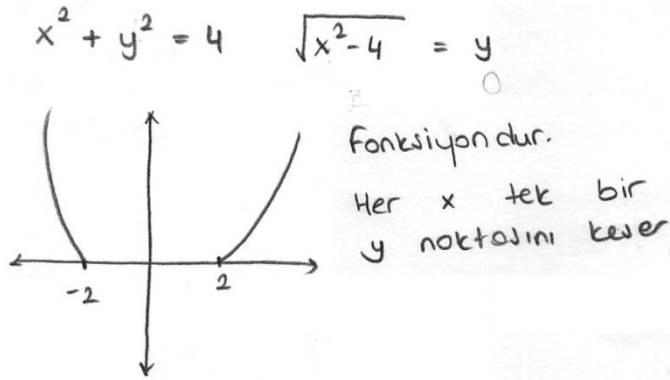 x² + y² = 4 √(x²-4) = y
Fonksiyondur.
Her x tek bir
y noktasını keser
-2 2